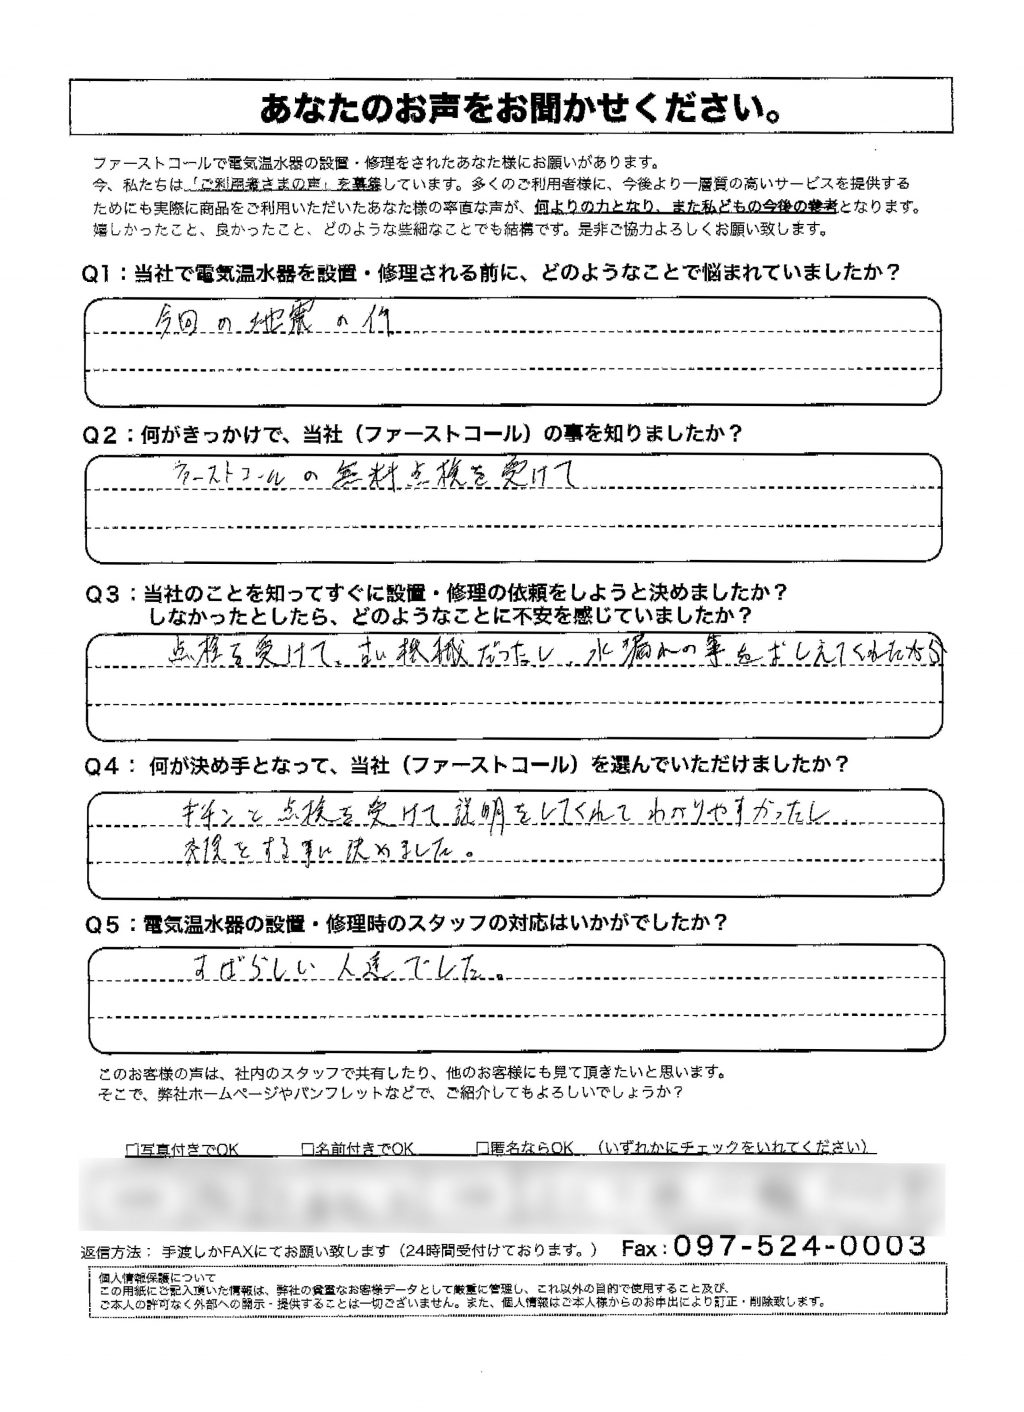 あなたのお声をお聞かせください。
ファーストコールで電気温水器の設置・修理をされたあなた様にお願いがあります。
今、私たちは「ご利用者さまの声」を募集しています。多くのご利用者様に、今後より一層質の高いサービスを提供する
ためにも実際に商品をご利用いただいたあなた様の率直な声が、何よりの力となり、また私どもの今後の参考となります。
嬉しかったこと、良かったこと、どのような些細なことでも結構です。是非ご協力よろしくお願い致します。
Q1：当社で電気温水器を設置・修理される前に、どのようなことで悩まれていましたか？
今回の地震の件
Q2：何がきっかけで、当社（ファーストコール）の事を知りましたか？
ファーストコールの無料点検を受けて
Q3：当社のことを知ってすぐに設置・修理の依頼をしようと決めましたか？
しなかったとしたら、どのようなことに不安を感じていましたか？
点検を受けて、古い機械だったし、水漏れの事をおしえてくれたから
Q4： 何が決め手となって、当社（ファーストコール）を選んでいただけましたか？
キチンと点検を受けて説明をしてくれてわかりやすかったし、
交換をする事に決めました。
Q5：電気温水器の設置・修理時のスタッフの対応はいかがでしたか？
すばらしい人達でした。
このお客様の声は、社内のスタッフで共有したり、他のお客様にも見て頂きたいと思います。
そこで、弊社ホームページやパンフレットなどで、ご紹介してもよろしいでしょうか？
□写真付きでOK □名前付きでOK □匿名ならOK （いずれかにチェックをいれてください）
返信方法： 手渡しかFAXにてお願い致します（24時間受付けております。） Fax：097-524-0003
個人情報保護について
この用紙にご記入頂いた情報は、弊社の貴重なお客様データとして厳重に管理し、これ以外の目的で使用すること及び、
ご本人の許可なく外部への開示・提供することは一切ございません。また、個人情報はご本人様からのお申出により訂正・削除致します。